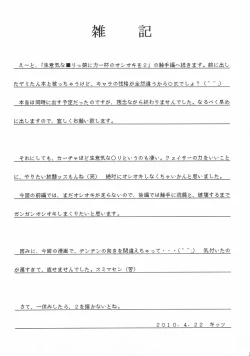 雑　記
えーと、「生意気な■りっ娘に力一杯のオシオキを２」の触手編へ続きます。前に出し
たヤリたん本と被っちゃうけど、キャラの性格が全然違うから○Kでしょ？（＾＿＾）
本当は同時に出す予定だったのですが、残念ながら終わりませんでした。なるべく早め
に出しますので、宜しくお願い致します。
それにしても、カーチャほど生意気な○りというのも凄い。フェイサーの力をいいこと
に、やりたい放題ッスもんね（笑）　絶対にオシオキしなくちゃいかんと思いました。
今回の前編では、まだオシオキが足らないので、後編では触手に捕縛と、破壊するまで
ガンガンオシオキしまくりたいと思います。
因みに、今回の漫画で、テンテンの向きを間違えちゃって・・・（＾＿＾；）　気付いたの
が遅すぎて、直せませんでした。スミマセン（苦）
さて、一休みしたら、２を描かないとね。
２０１０．４．２２　キッツ